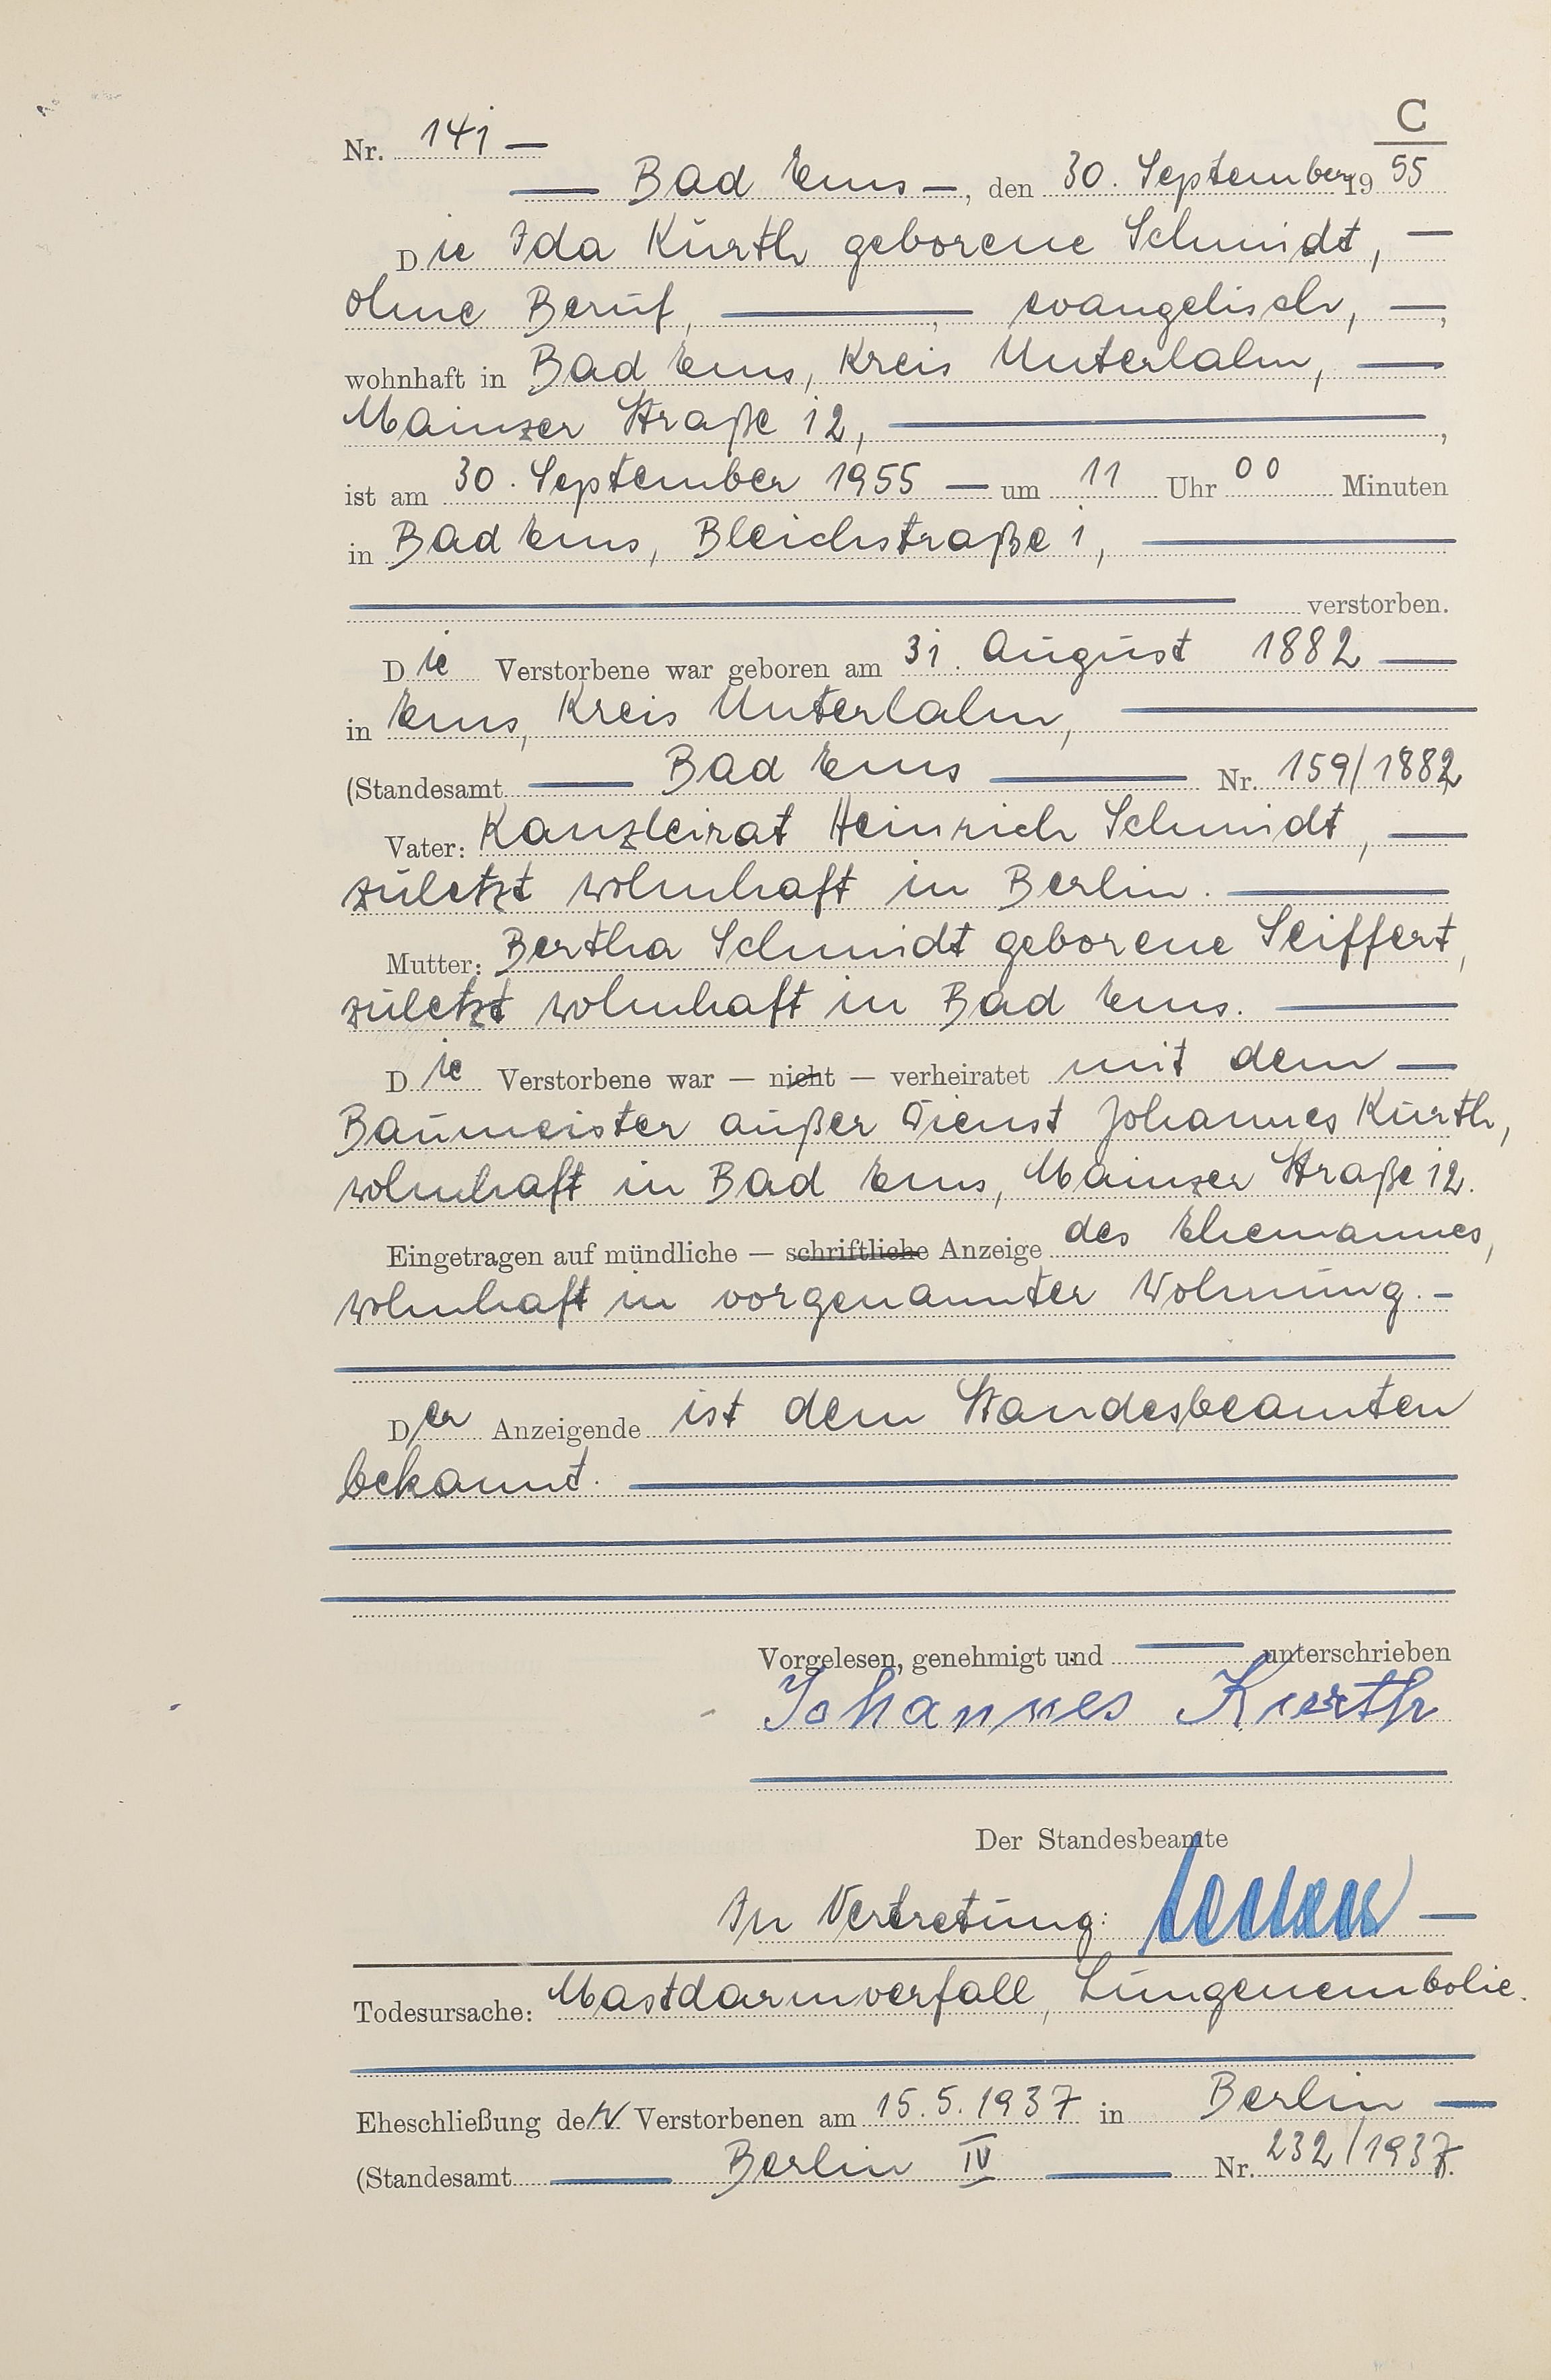 C
Nr. 141 —
— Bad Ems —, den 30. September 19 55
Die Ida Kurth geborene Schmidt, —
ohne Beruf, —, — evangelisch, —,
wohnhaft in Bad Ems, Kreis Unterlahn, —
Mainzer Straße 12, —,
ist am 30. September 1955 — um 11 Uhr 00 Minuten
in Bad Ems, Bleichstraße 1, —
— verstorben.
Die Verstorbene war geboren am 31. August 1882 —
in Ems, Kreis Unterlahn, —
(Standesamt — Bad Ems — Nr. 159/1882
Vater: Kanzleirat Heinrich Schmidt, —
zuletzt wohnhaft in Berlin. —
Mutter: Bertha Schmidt geborene Seiffert,
zuletzt wohnhaft in Bad Ems. —
Die Verstorbene war — nicht — verheiratet mit dem —
Baumeister außer Dienst Johannes Kurth,
wohnhaft in Bad Ems, Mainzer Straße 12.
Eingetragen auf mündliche — schriftliche Anzeige des Ehemannes,
wohnhaft in vorgenannter Wohnung. —
Der Anzeigende ist dem Standesbeamten
bekannt. —
Vorgelesen, genehmigt und — unterschrieben
Johannes Kurth
Der Standesbeamte
In Vertretung: —
Todesursache: Mastdarmverfall, Lungenembolie.
Eheschließung der Verstorbenen am 15.5.1937 in Berlin —
(Standesamt — Berlin IV — Nr. 232/1937.